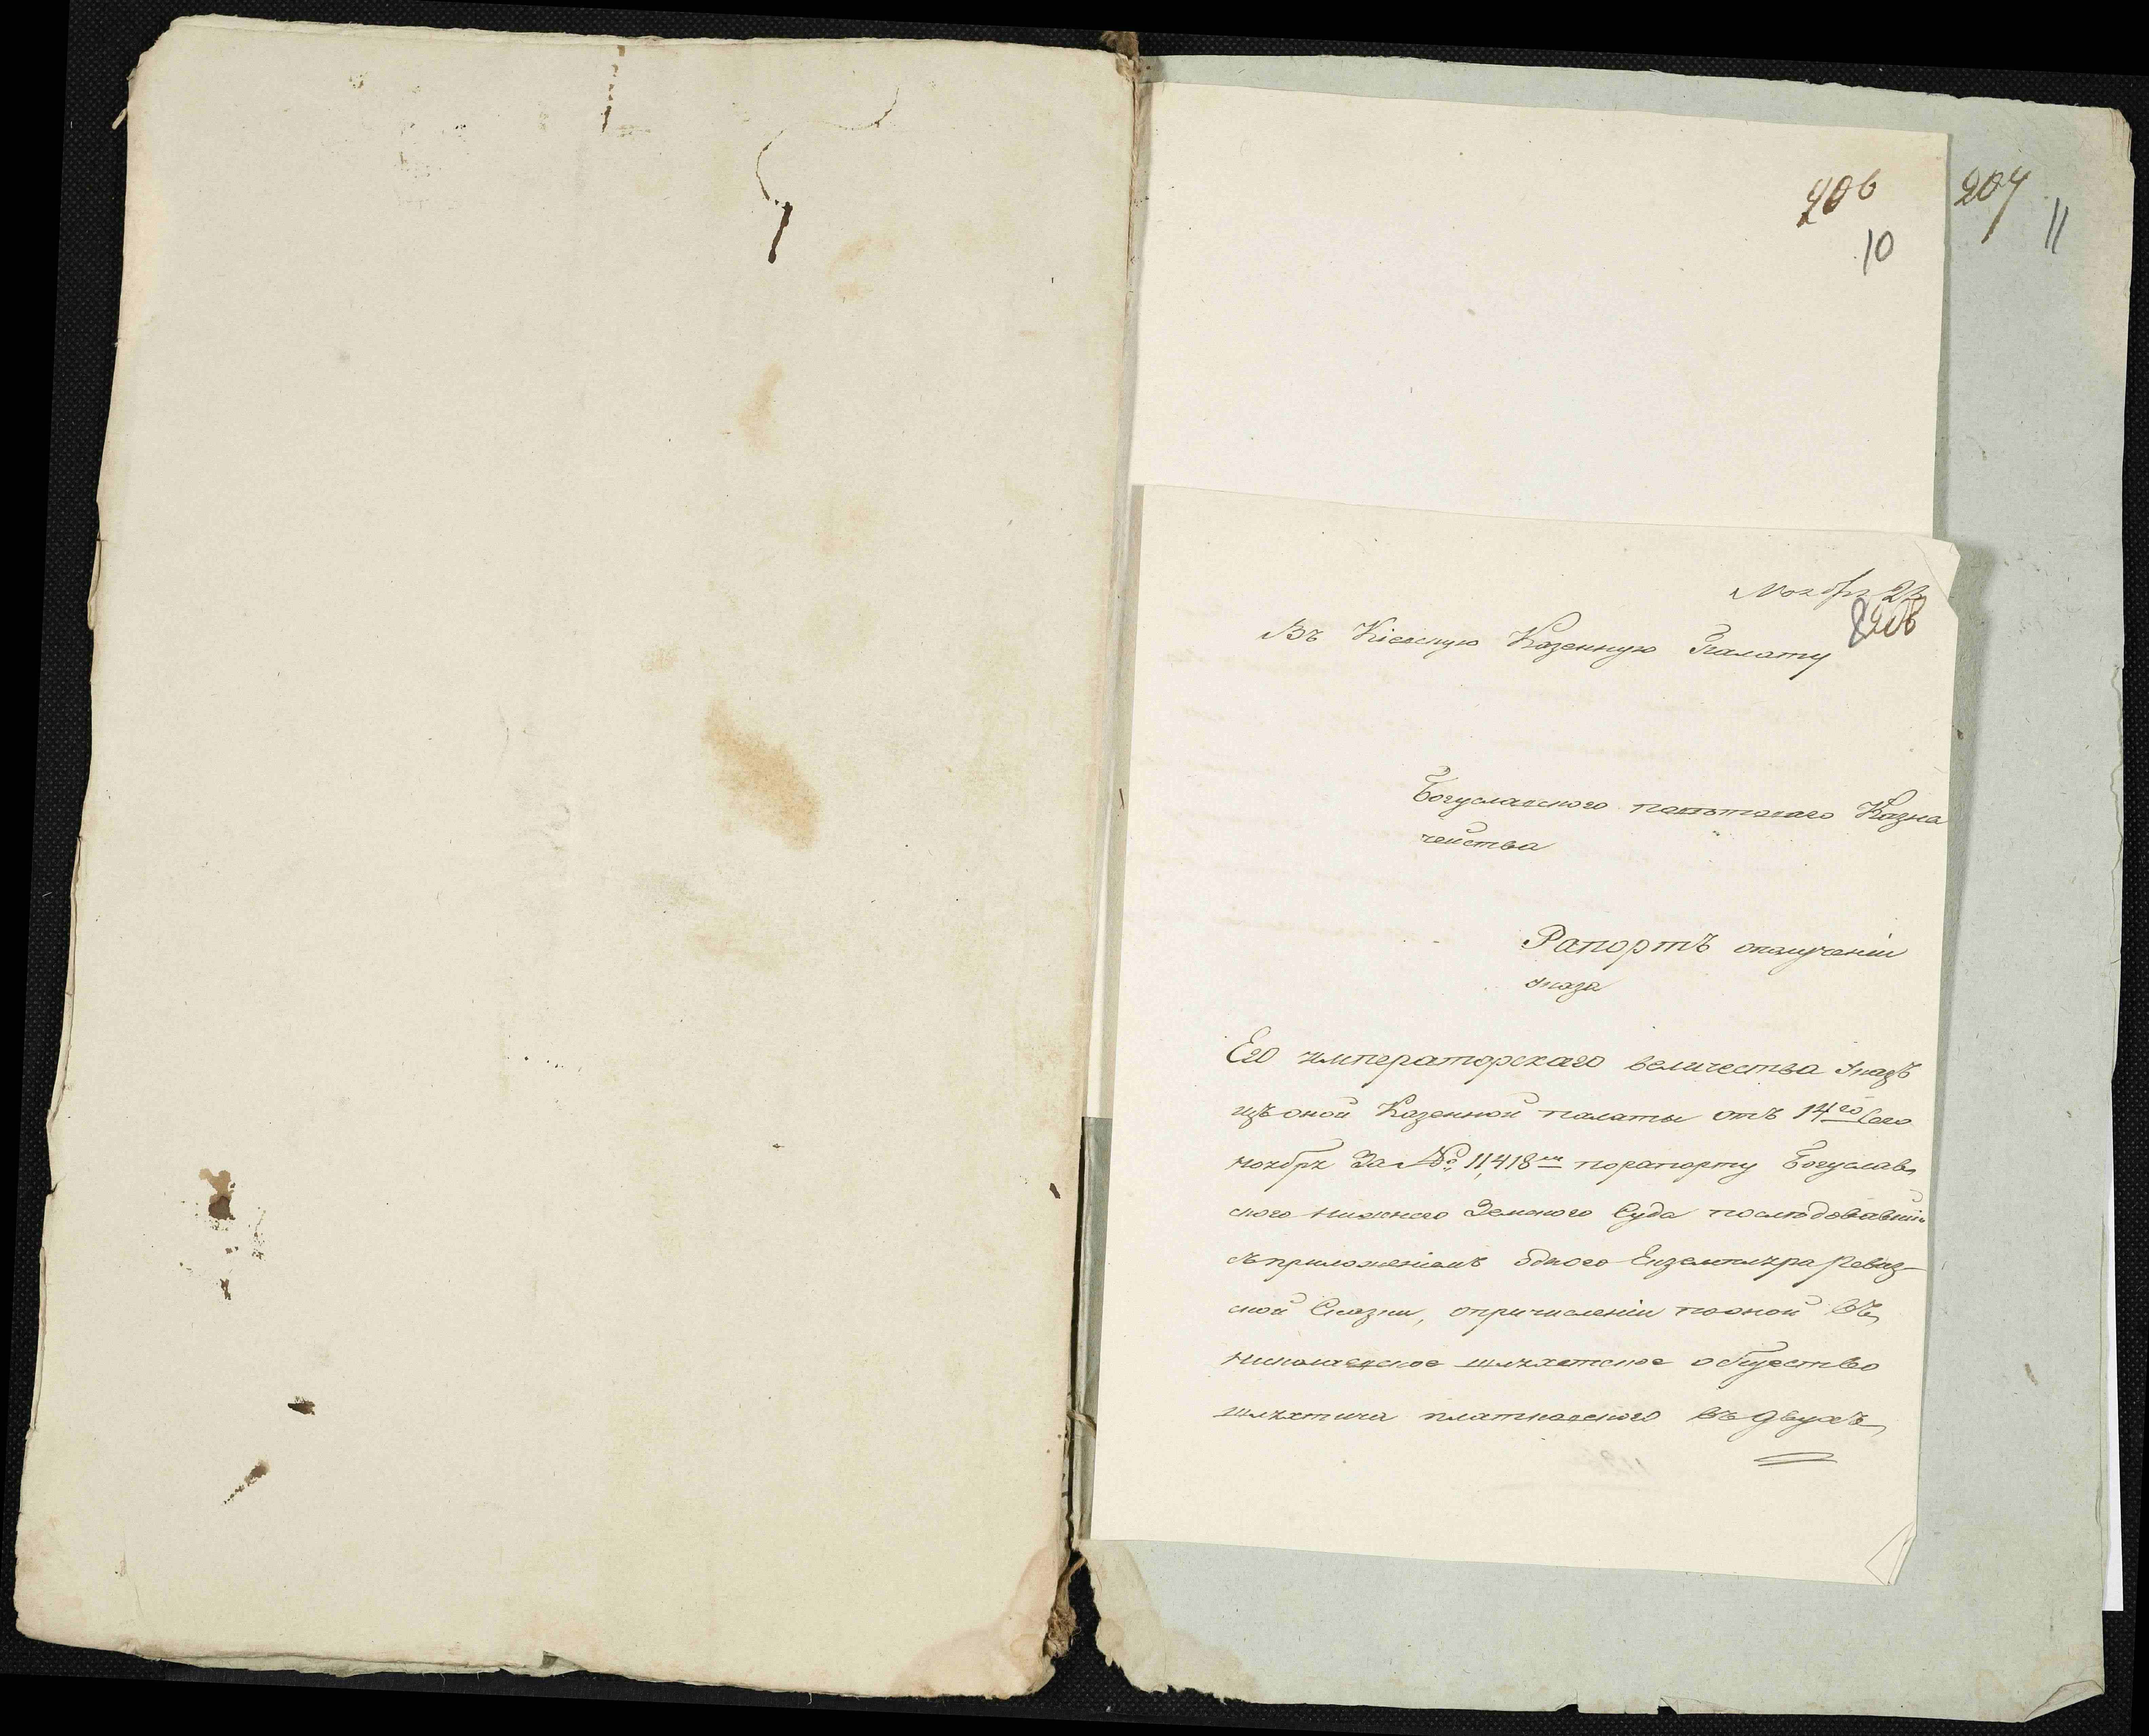 206
10
207
11
Ноября 23
Въ Кіевскую Казенную Палату
Богуславского поветового Казна
чейства
Рапортъ ополучении
указа
Его императорскаго величества Указъ
изъ оной Казенной палаты отъ 14го сего
ноября За №: 11,418м порапорту Богуслав
ского нижнего Земского Суда последовавший
съприложениемъ одного Екземпляра Ревиз-
ской Сказки, опричислении пооной въ
николаевское шляхетское общество
шляхтича платковского въ двухъ